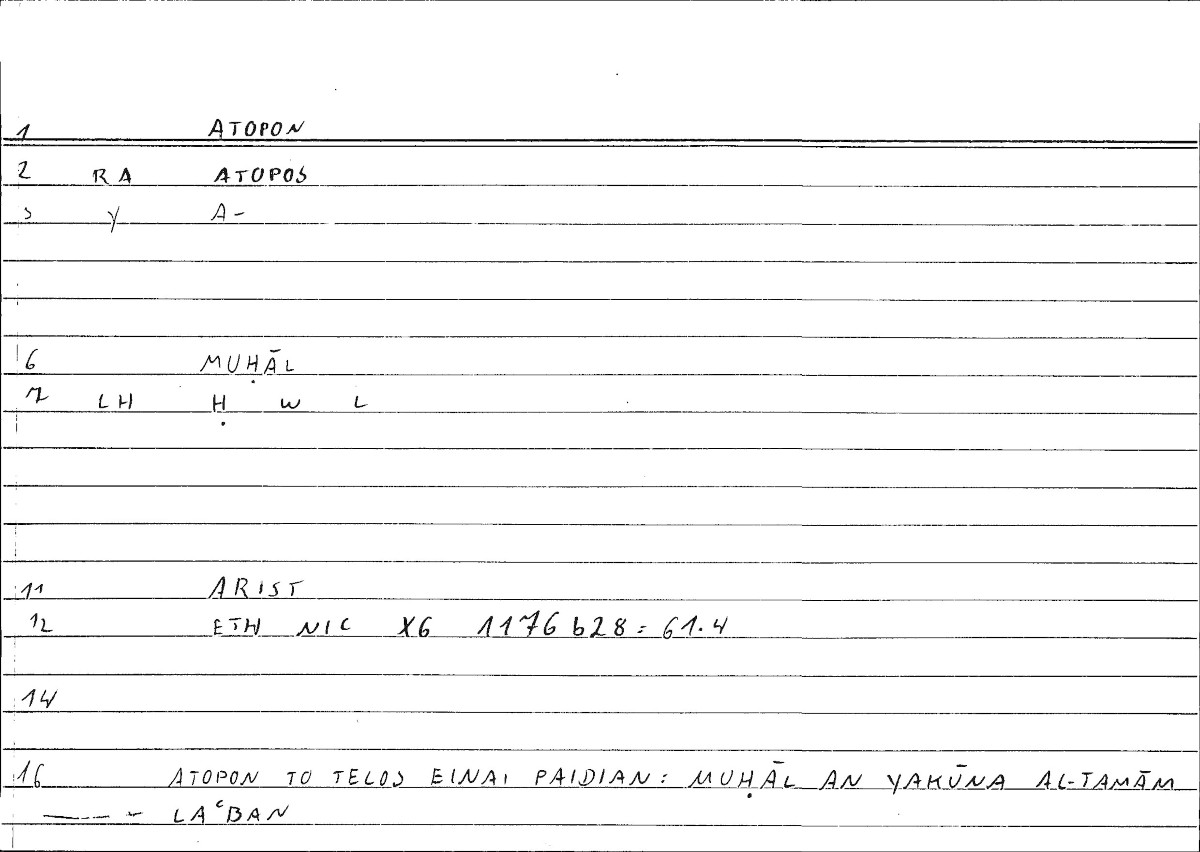 1 ATOPON
2 RA ATOPOS
3 Y A-
6 MUḤĀL
7 LH Ḥ W L
11 ARIST
12 ETH NIC X6 1176 b28 = 61.4
14
16 ATOPON TO TELOS EINAI PAIDIAN: MUḤĀL AN YAKŪNA AL-TAMĀM
LAʿBAN